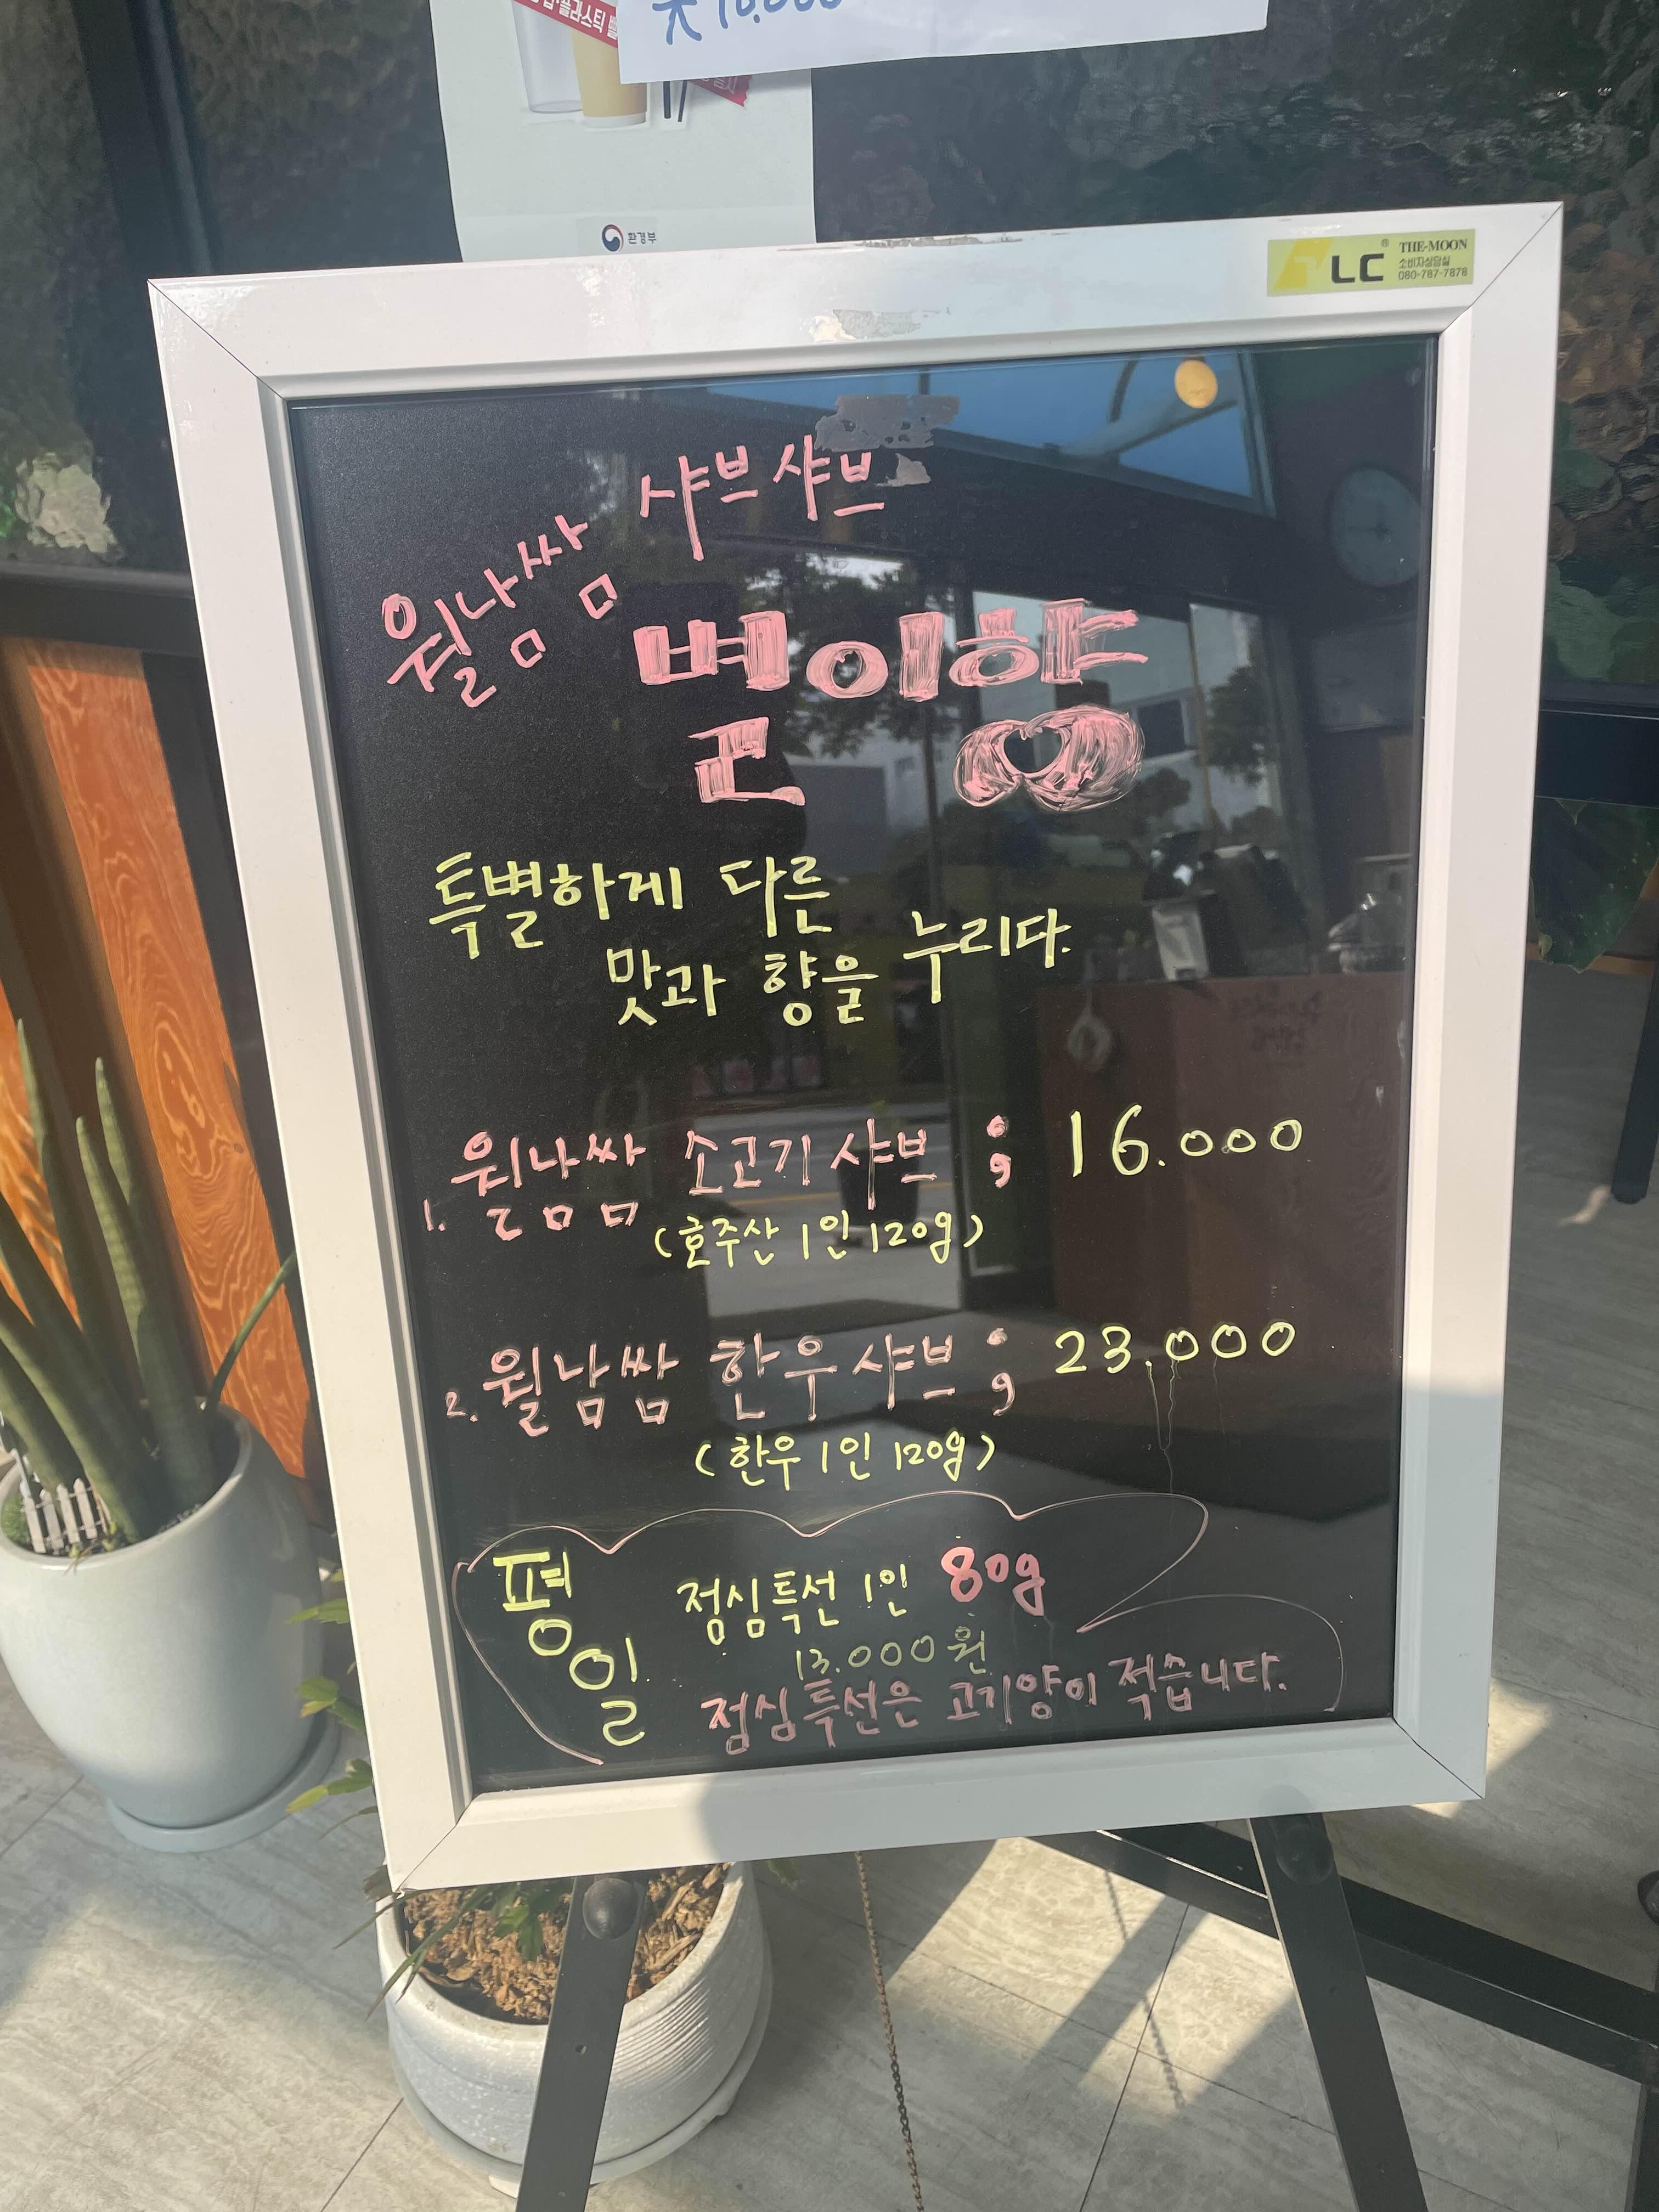 10.000
환경부
LC
THE-MOON
소비자상담실
080-787-7878
월남쌈 샤브샤브
별이향
특별하게 다른
맛과 향을 누리다.
1. 월남쌈 소고기 샤브 ; 16.000
(호주산 1인 120g)
2. 월남쌈 한우 샤브 ; 23.000
(한우 1인 120g)
평일
점심특선 1인 80g
13.000원
점심특선은 고기양이 적습니다.